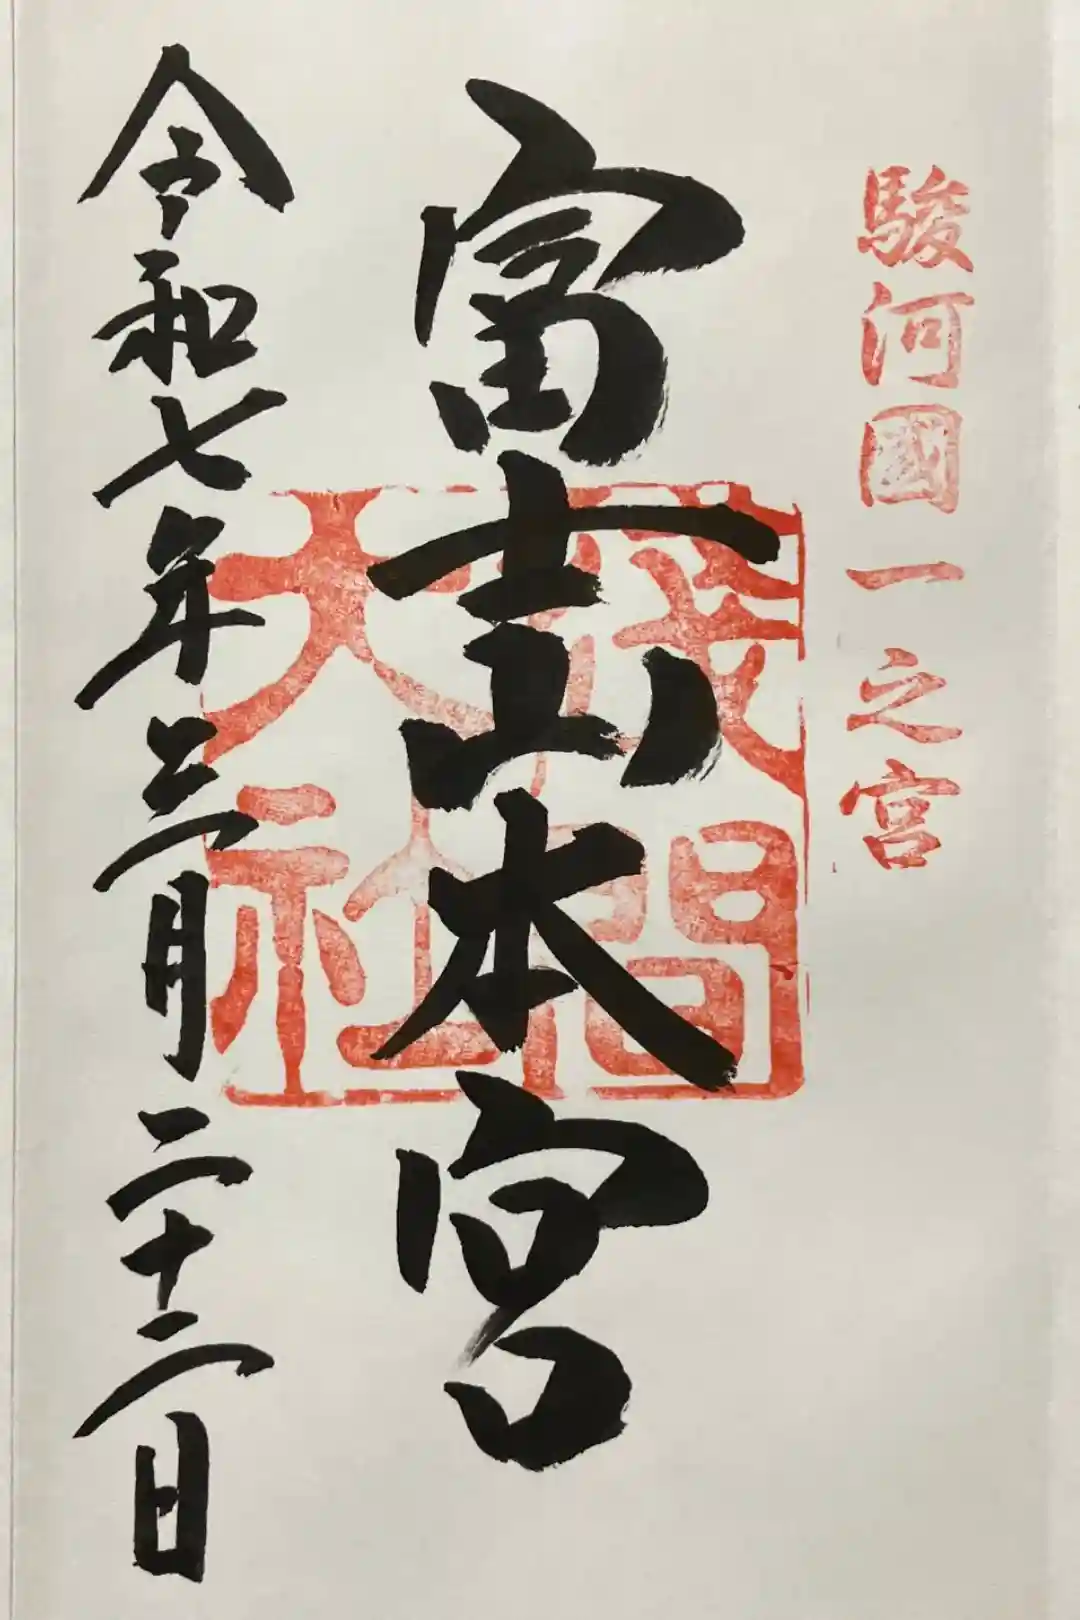 駿河國一之宮
富士山本宮
浅間大社
令和七年三月二十二日